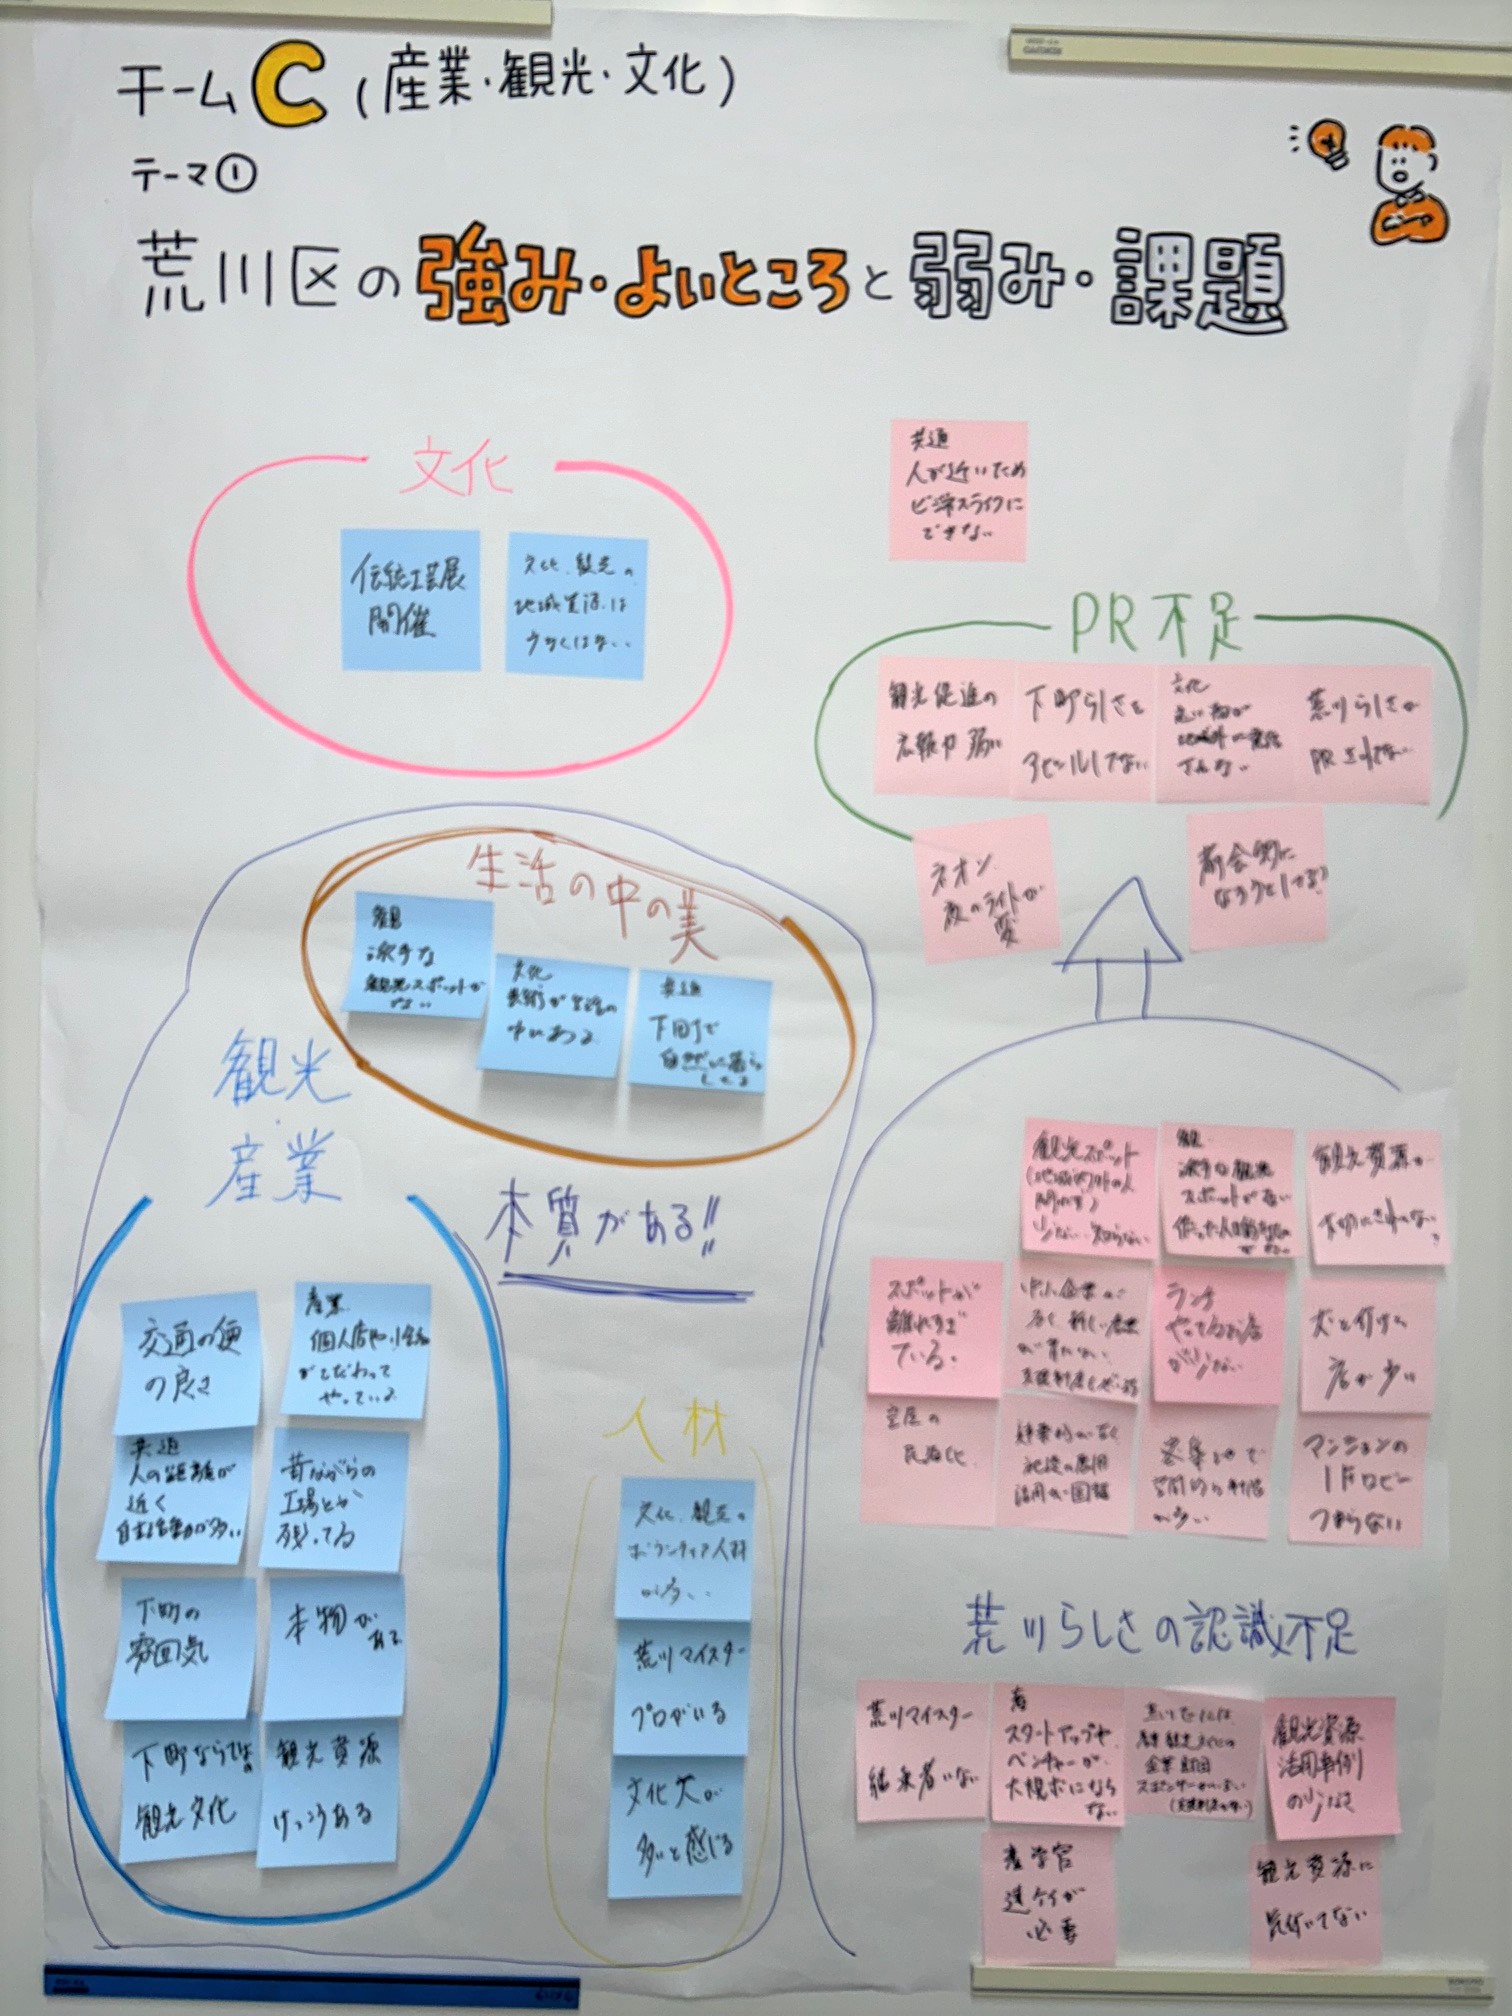 チームC(産業・観光・文化)
テーマ①
荒川区の強み・よいところと弱み・課題
文化
伝統工芸展
開催
文化、観光の
地域資源は
少なくはない
共通
人が近いため
ビジネスライクに
できない
PR不足
観光促進の
広報が弱い
下町らしさを
アピールしてない
文化
地域外に発信
されない
荒川らしさが
PRされてない
ネオン
夜のライトが
変
都会的に
なろうとしてる?
生活の中の美
観
派手な
観光スポットが
ない
文化
芸術が生活の
中にある
共通
下町で
自然に暮らし
観光
・
産業
本質がある!!
交通の便
の良さ
産業
個人店や小会社
がこだわって
やっている
共通
人の距離が
近く
自主活動が多い
昔ながらの
工場とか
残ってる
下町の
雰囲気
本物が
ある
下町ならではの
観光文化
観光資源
けっこうある
人材
文化、観光の
ボランティア人材
が多い
荒川マイスター
プロがいる
文化人が
多いと感じる
観光スポット
少ない、知らない
観
派手な観光
スポットがない
観光資源が
大切にされてない?
スポットが
離れすぎ
ている。
中小企業が
多く新しい産業
が育たない
ランチ
やってるお店
が少ない
犬と行ける
店が少ない
空屋の
民泊化
建築的に古く
施設の
活用が困難
密集地で
空間的に制限
が多い
マンションの
1Fロビー
つまらない
荒川らしさの認識不足
荒川マイスター
継承者いない
産
スタートアップや
ベンチャーが
大規模になら
ない
企業財団
スポンサーがいない
観光資源
活用事例
の少なさ
産学官
連ケイが
必要
観光資源に
気付いてない